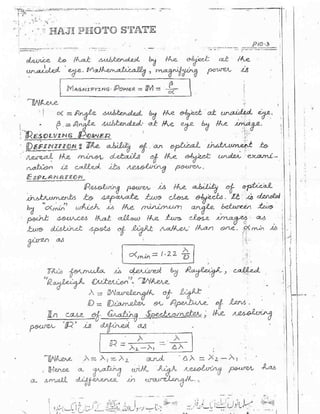 HAJI PHOTO STATE
P10-3
device to that subtended by the object at the
unaided eye. Mathematically, magnifying power is
MAGNIFYING POWER = M = β/α
Where
α = Angle subtended by the object at unaided eye.
β = Angle subtended at the eye by the image.
RESOLVING POWER
DEFINITION: The ability of an optical instrument to
reveal the minor details of the object under exami-
nation is called its resolving power.
EXPLANATION
Resolving power is the ability of optical
instruments to separate two close objects. It is denoted
by "αmin" which is the minimum angle between two
point sources that allow the two close images as
two distinct spots of light rather than one. αmin is
given as
αmin = 1.22 λ/D
This formula is derived by Rayleigh, called
"Rayleigh Criterion". Where
λ = Wavelength of light
D = Diameter or Aperture of lens.
In case of Grating Spectrometer, the resolving
power 'R' is defined as
R = λ/(λ₂-λ₁) = λ/Δλ
Where λ ≈ λ₁ ≈ λ₂ and Δλ = λ₂-λ₁
Hence a grating with high resolving power has
a small difference in wavelength.